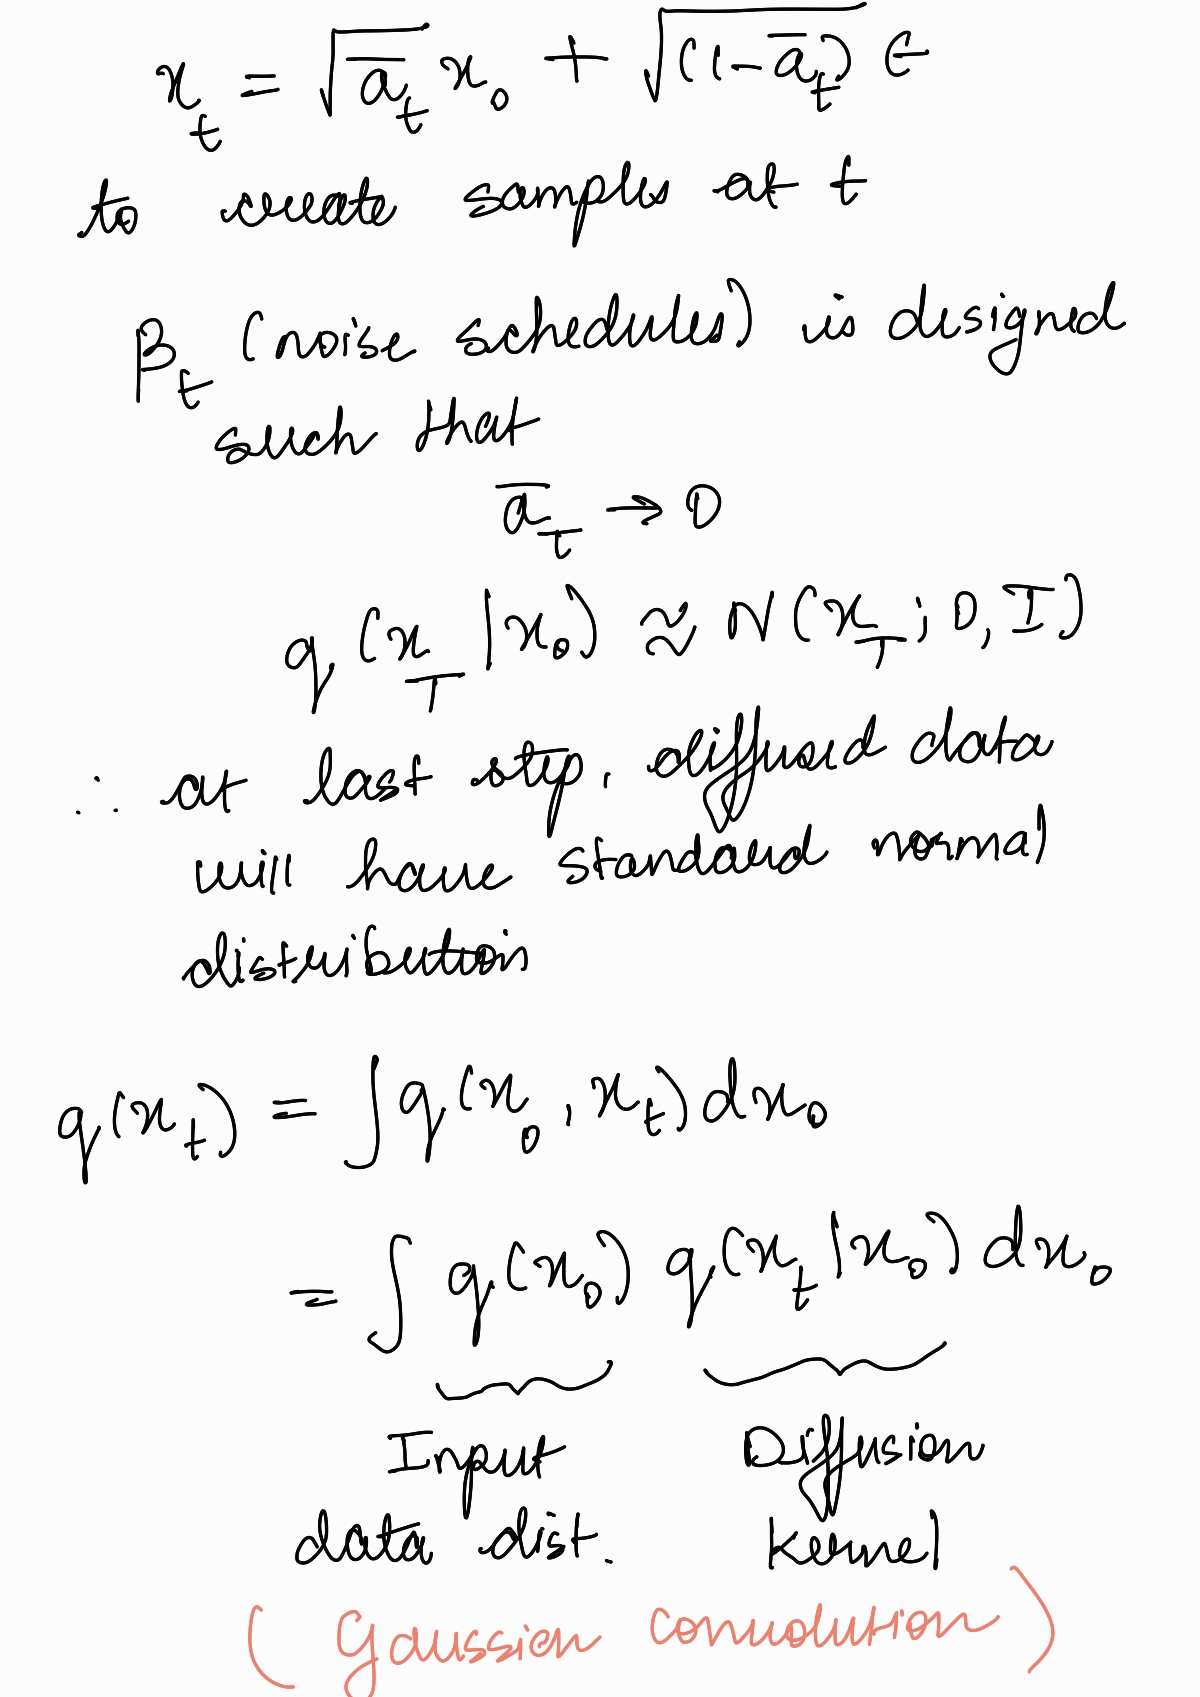 x_t = √(a̅_t) x_0 + √((1-a̅_t)) ϵ
to create samples at t
β_t (noise schedules) is designed
such that
a̅_T → 0
q(x_T | x_0) ≈ N(x_T; 0, I)
∴ at last step, diffused data
will have standard normal
distribution
q(x_t) = ∫ q(x_0, x_t) dx_0
= ∫ q(x_0) q(x_t | x_0) dx_0
Input Diffusion
data dist. kernel
(Gaussian convolution)